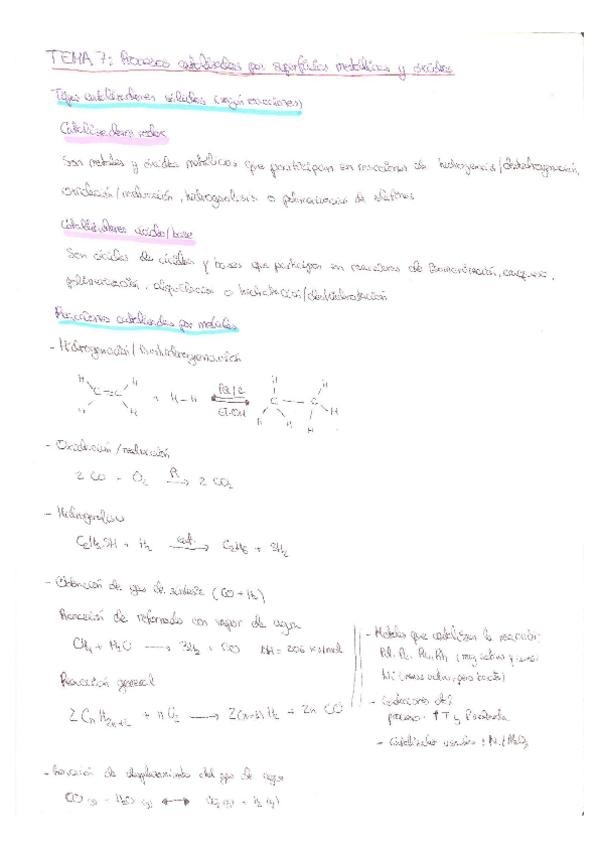 TEMA 7: Procesos catalizados por superficies metálicas y óxidos
Tipos catalizadores sólidos (según reacciones)
Catalizadores redox
Son metales y óxidos metálicos que participan en reacciones de hidrogenación/deshidrogenación,
oxidación/reducción, hidrogenolisis o polimerización de olefinas
Catalizadores ácido/base
Son óxidos de ácidos y bases que participan en reacciones de isomerización, craqueo,
polimerización, alquilación o hidratación/deshidratación
Reacciones catalizadas por metales
- Hidrogenación/Deshidrogenación
H H C=C H H + H-H Pd/C Et-OH H H H C C H H H
- Oxidación/reducción
2 CO + O2 → 2 CO2
- Hidrogenolisis
C2H5SH + H2 cat. → C2H6 + SH2
- Obtención de gas de síntesis (CO + H2)
Reacción de reformado con vapor de agua
CH4 + H2O → 3H2 + CO ΔH = 206 kJ/mol
Reacción general
2 CnH2n+2 + nO2 → 2(n+1)H2 + 2n CO
- Metales que catalizan la reacción:
Ni (menos activo, pero barato)
- Condiciones del
proceso: ↑T y P
- Catalizador
- Reacción de desplazamiento del gas de agua
CO (g) + H2O (g) ↔ CO2 (g) + H2 (g)